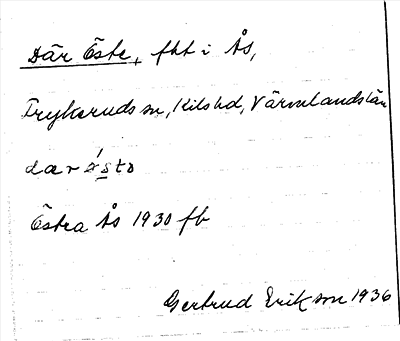 Där Öste, fht i Ås,
Frykeruds sn, Kils hd, Värmlands län
dær ö́sto
Östra Ås 1930 fb
Gertrud Erikson 1936